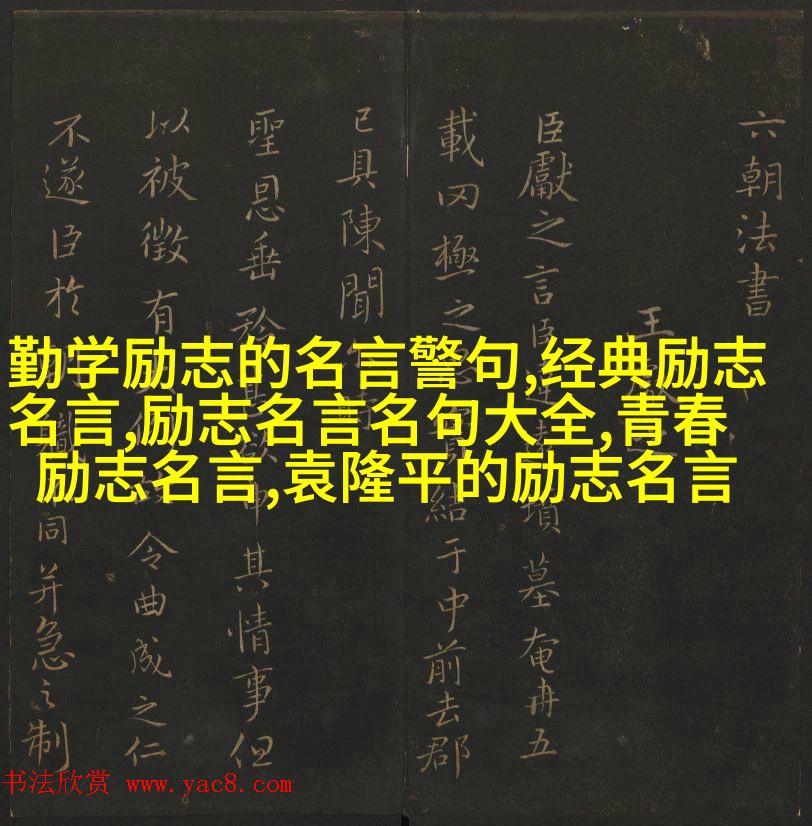 勤学励志的名言警句,经典励志
名言,励志名言名句大全,青春
励志名言,袁隆平的励志名言
六朝法書
王
臣獻之言臣違墳墓奄冉五
載罔極之結于中前去郡
已具陳聞
聖恩垂矜其情事但
以被徵有令曲成之仁
不遂臣於同并急之制
书法欣赏 www.yac8.com